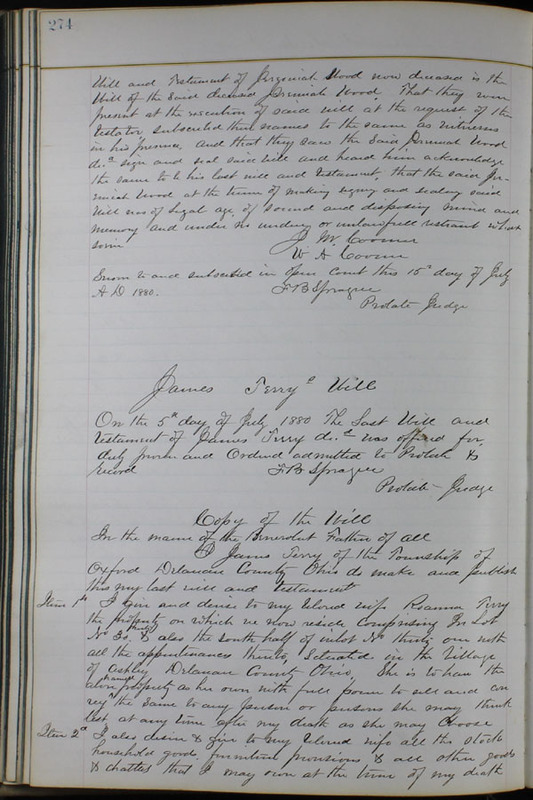 274
Will and Testament of Jeremiah Wood now deceased is the
Will of the said deceased Jeremiah Wood That they were
present at the execution of said will at the request of the
testator subscribed their names to the same as witnesses
in his presence, and that they saw the said Jeremiah Wood
dec.d sign and seal said will and heard him acknowledge
the same to be his last will and testament, that the said Jer-
emiah Wood at the time of making signing and sealing said
will was of legal age, of sound and disposing mind and
memory and under no undue, or unlawful restraint whatso-
ever
J M Coomer
W A Coomer
Sworn to and subscribed in open Court this 15th day of July
A D 1880.
F B Sprague
Probate Judge
James Terry's Will
On the 5th day of July 1880 The Last Will and
testament of James Terry dec.d was offered for,
duly proven and Ordered admitted to Probate &
record
F B Sprague
Probate Judge
Copy of the Will
In the name of the Benevolent Father of all
I James Terry of the Township of
Oxford Delaware County Ohio do make and publish
this my last will and testament
Item 1st I give and devise to my beloved wife Roanna Terry
the property on which we now reside Comprising In Lot
No 30, thirty & also the south half of inlot No thirty one with
all the appurtenances thereto, Situated in the Village
of Ashley Delaware County Ohio, She is to have the
above named property as her own with full power to sell and con
vey the same to any person or persons she may think
best at any time after my death as she may choose
Item 2d I also desire & give to my beloved wife all the stock
household goods furniture provisions & all other goods
& chattles that I may own at the time of my death